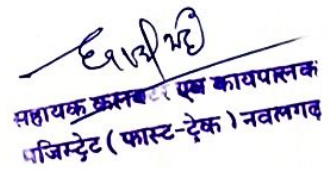 सहायक कलक्टर एवं कार्यपालक
मजिस्ट्रेट (फास्ट-ट्रेक) नवलगढ़